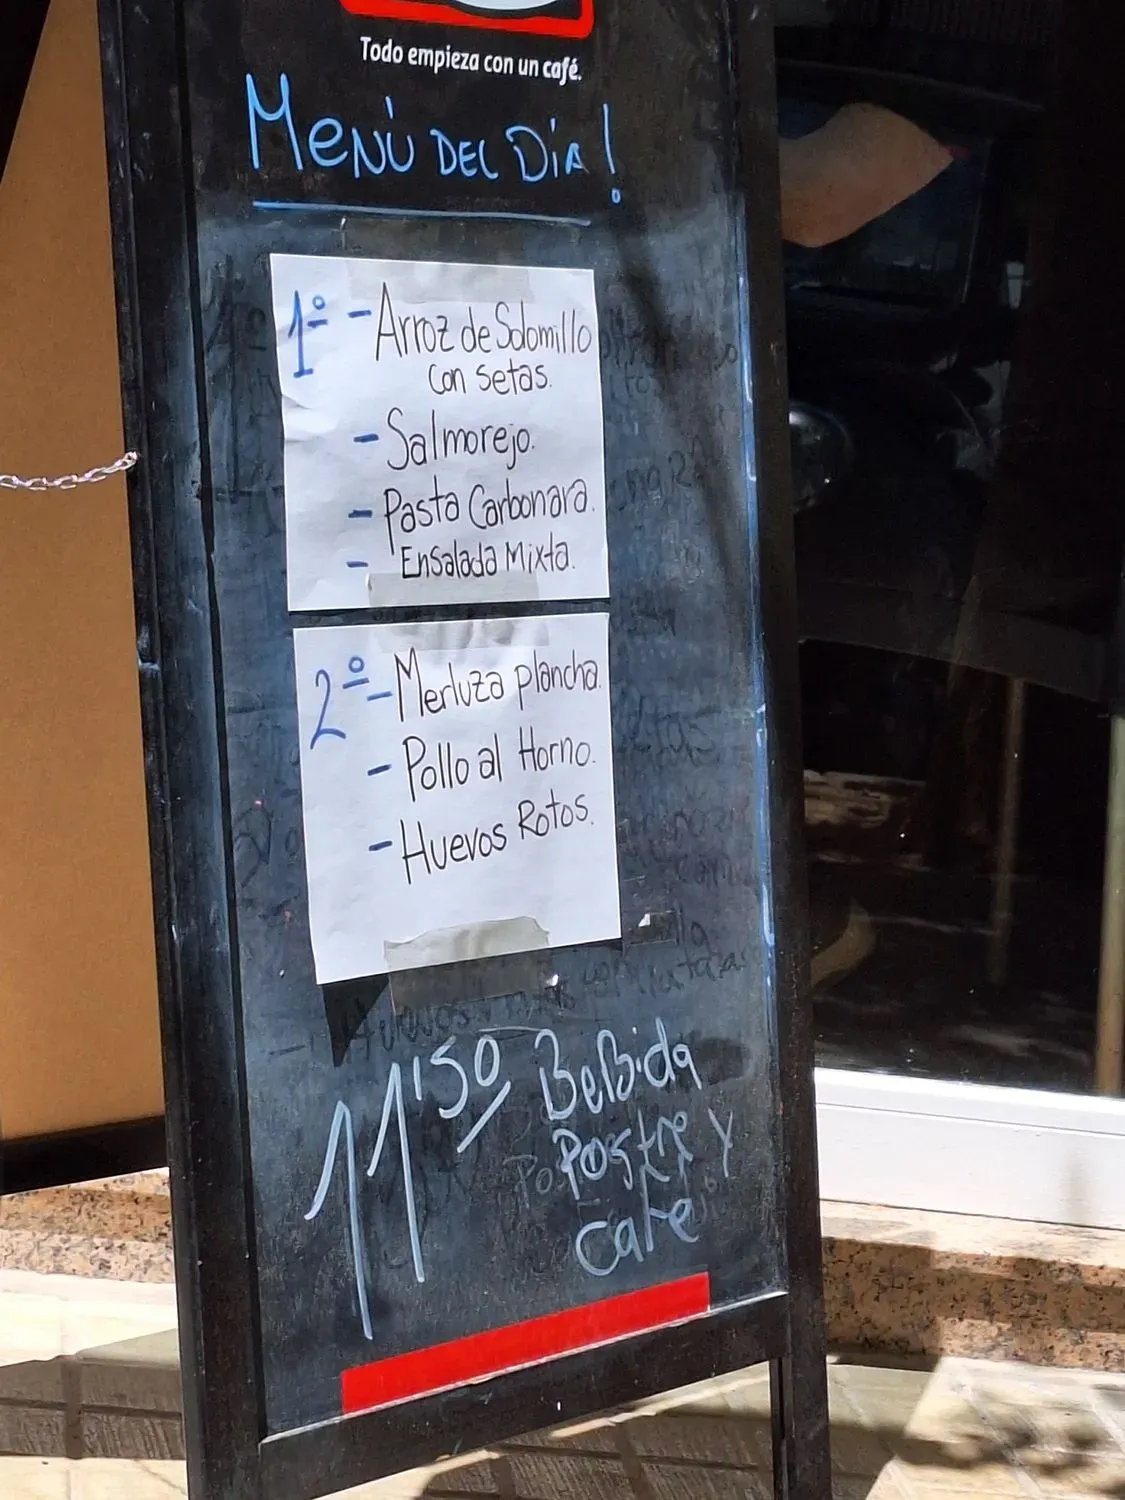 Todo empieza con un café.
Menù DEL Día!
1º - Arroz de Solomillo
con setas.
- Salmorejo.
- Pasta Carbonara.
- Ensalada Mixta.
2º - Merluza plancha.
- Pollo al Horno.
- Huevos Rotos.
11'50 Bebida
Postre y
Café